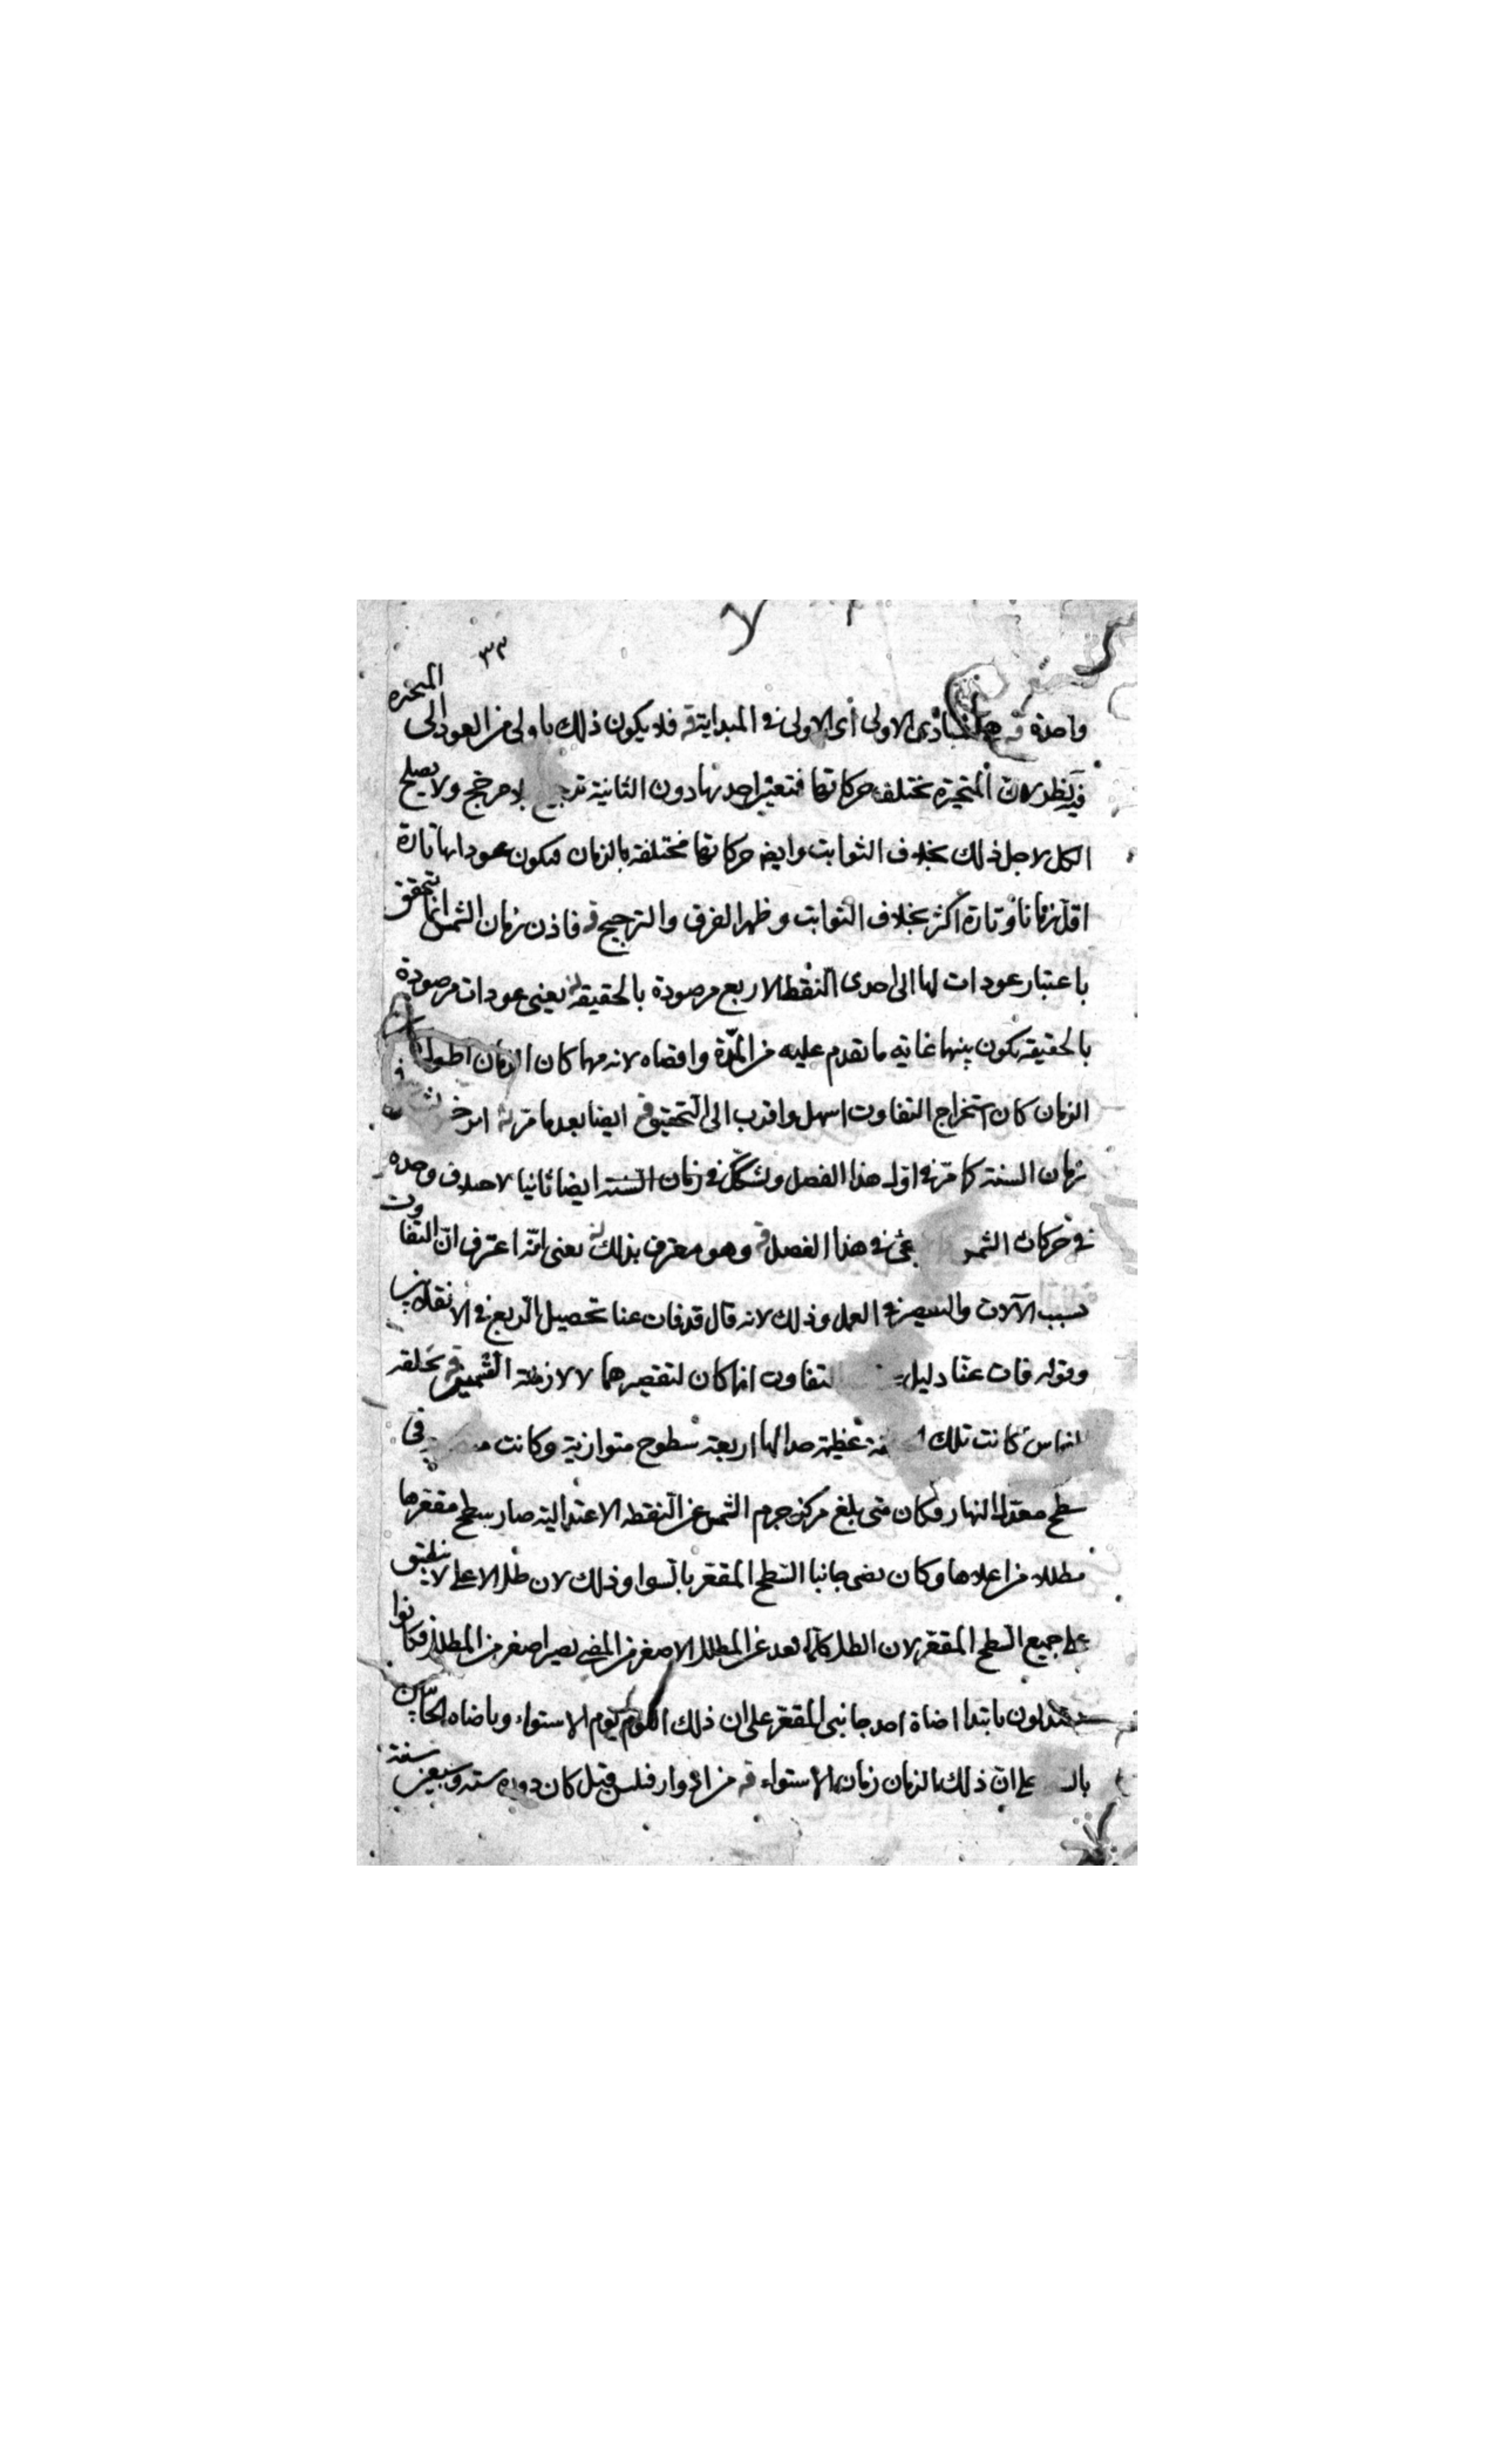 ٣٣
واحدة قه المبادى الاولى أى الاولى فى المبدايتة فلا يكون ذلك باولى من العود الى المتحيره
فيه نظر لان المتحيرة تختلف حركاتها فتعتبر احديها دون الثانية ترجيح بلا مرجح ولا يصلح
الكل لاجل ذلك بخلاف الثوابت وايضا حركاتها مختلفة بالزمان فيكون عوداتها تارة
اقل زمانا وتارة اكثر بخلاف الثوابت وظهر الفرق والترجيح قه فاذن زمان الشمس انما يتحقق
باعتبار عودات لها الى احدى النقط الاربع مرصودة بالحقيقة يعنى عودات مرصودة
بالحقيقة يكون بينها غاية ما تقدم عليه من المدة واقصاه لانه مهما كان الزمان اطول
الزمان كان استخراج التفاوت اسهل واقرب الى التحقيق قه ايضا بعد ما مر
زمان السنة كما مر فى اول هذا الفصل وتشكك فى زمان السنة ايضا ثانيا لاختلاف وجده
فى حركات الشمس فى هذا الفصل قه وهو معترف بذلك يعنى انه اعترف ان التفاوت
بسبب الآلات والتقصير فى العمل وذلك لانه قال قد فات عنا تحصيل الربع فى الانقلابين
وقوله فات عنا دليل التفاوت انما كان لتقصيرهما لا لازمنة الشمس قه بحلقة
النحاس كانت تلك الحلقة عظيمة صدالها اربعة سطوح متوازية وكانت فى
سطح معدل النهار وكان متى بلغ مركز جرم الشمس عن النقطة الاعتدالية صار سطح مقعرها
مظللا من اعلاها وكان يضى جانبا السطح المقعر بالسوا وذلك لان ظل الاعلى لا ينطبق
على جميع السطح المقعر لان الظل كلما بعد عن المظلل الاصغر من المضى يصير اصغر من المظلل فكانوا
يستدلون بابتدا اضاة احد جانبى المقعر على ان ذلك اليوم يوم الاستواء وباضاه الجانبين
على ان ذلك الزمان زمان الاستواء قه من ادوار فنلس قيل كان دوره ستة وسبعين سنة